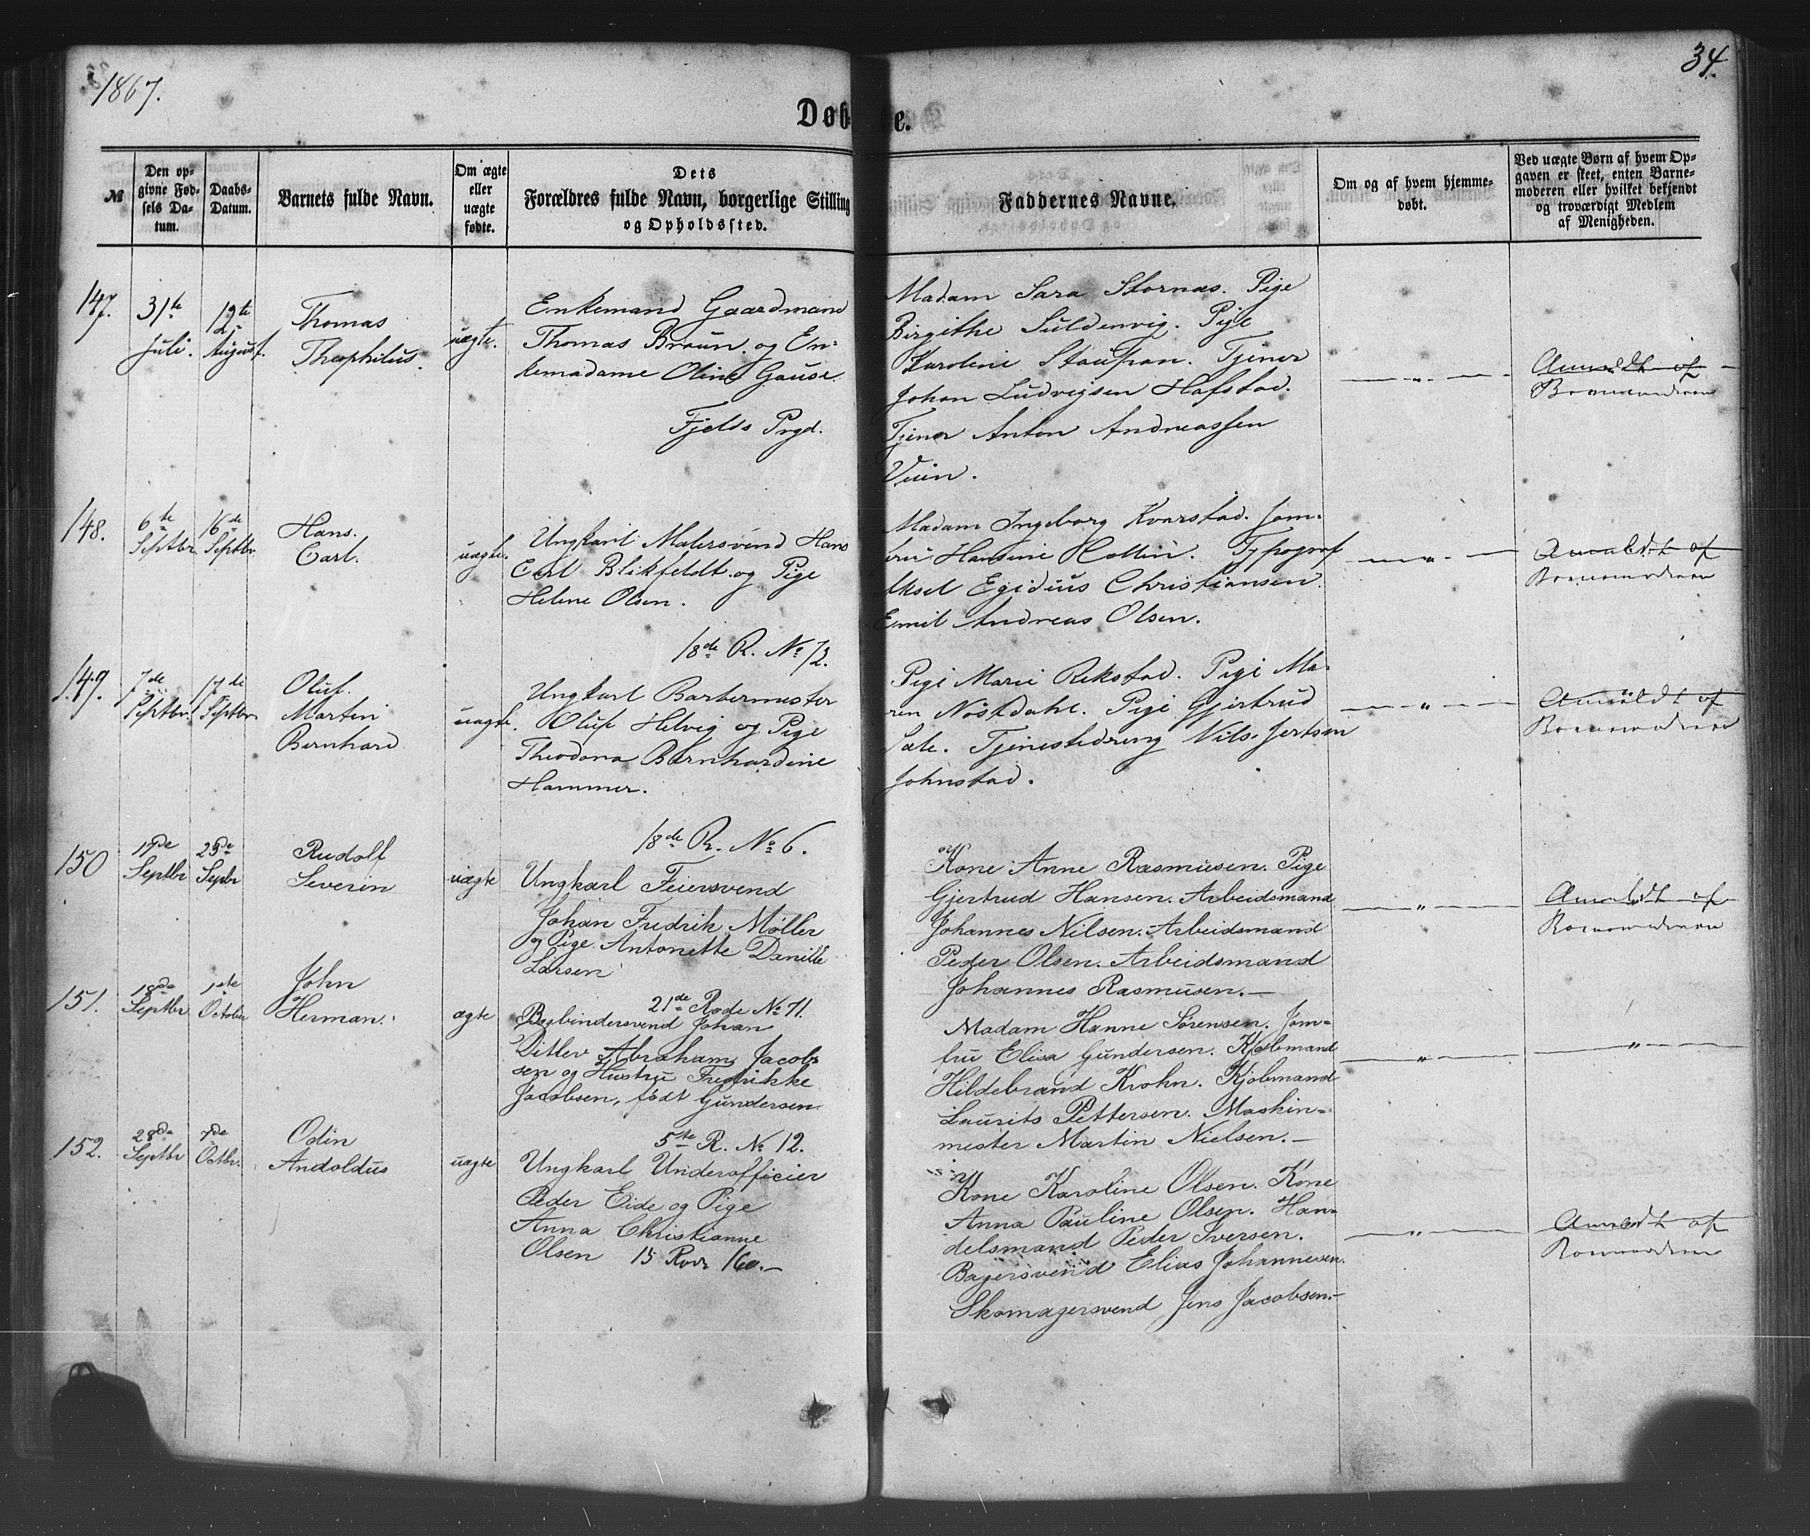 1867.
34.
Døbte.
№
Den opgivne Fødsels Datum.
Daabs-Datum.
Barnets fulde Navn.
Om ægte eller uægte fødte.
Dets
Forældres fulde Navn, borgerlige Stilling
og Opholdssted.
Faddernes Navne.
Om og af hvem hjemmedøbt.
Ved uægte Børn af hvem Opgaven er skeet, enten Barnemoderen eller hvilket bekjendt og troværdigt Medlem af Menigheden.
147.
31te
Juli.
12te
August.
Thomas
Theophilus.
uægte.
Enkemand Gaardmand
Thomas Braun og En-
kemadame Oline Gause.
Fjelds Prgd.
Madam Sara Stornas. Pige
Birgithe Suldenvig. Pige
Karoline Tjener
Johan Ludvigsen Hafstad.
Tjener Anton Andreassen
Anmeldt af
Barnemoderen
148.
6te
Septbr.
16de
Septbr.
Hans.
Carl.
uægte.
Ungkarl Malersvend Hans
Carl Blikfeldt og Pige
Helene Olsen.
18de R. No 72.
Madam Ingeborg Kvarstad. Jom-
fru Hansine Typograf
Aksel Egidius Christiansen.
Emil Andreas Olsen.
Anmeldt af
Barnemoderen
149.
7de
Septbr.
17de
Septbr.
Oluf.
Martin
Bernhard
uægte.
Ungkarl Barbermester
Oluf Helvig og Pige
Theodona Bernhardine
Hammer.
18de R. No 6.
Pige Marie Rekstad. Pige Ma-
ren Nøstdahl. Pige Gjertrud
Sæle. Tjenestedreng Nils
Johnstad.
Anmeldt af
Barnemoderen
150
Septbr
25de
Septbr
Rudolf
Severin
uægte
Ungkarl Feiersvend
Johan Fredrik Møller
og Pige Antonette Danille
Larsen
21de Rode No 71.
Kone Anne Rasmusen. Pige
Gjertrud Hansen. Arbeidsmand
Johannes Nilsen. Arbeidsmand
Peder Olsen. Arbeidsmand
Johannes Rasmusen.—
Anmeldt af
Barnemoderen
151.
18de
Septbr
1ste
October
John
Herman.
ægte
Bogbindersvend Johan
Ditlev Abraham Jacob-
sen og Hustru Fredrikke
Jacobsen, født Gundersen.
5te R. No 12.
Madam Hanne Sørensen. Jom-
fru Elisa Gundersen. Kjøbmand
Hildebrand Krohn. Kjøbmand
Laurits Pettersen. Maskin-
mester Martin Nielsen.—
152.
28de
Septbr
7de
Octbr.
Odin
Andoldus
uægte
Ungkarl Underofficier
Peder Eide og Pige
Anna Christianne
Olsen 15 Rode 160.—
Kone Karoline Olsen. Kone
Anna Pauline Olsen. Han-
delsmand Peder Iversen.
Bagersvend Elias Johannesen.
Skomagersvend Jens Jacobsen.—
Anmeldt af
Barnemoderen